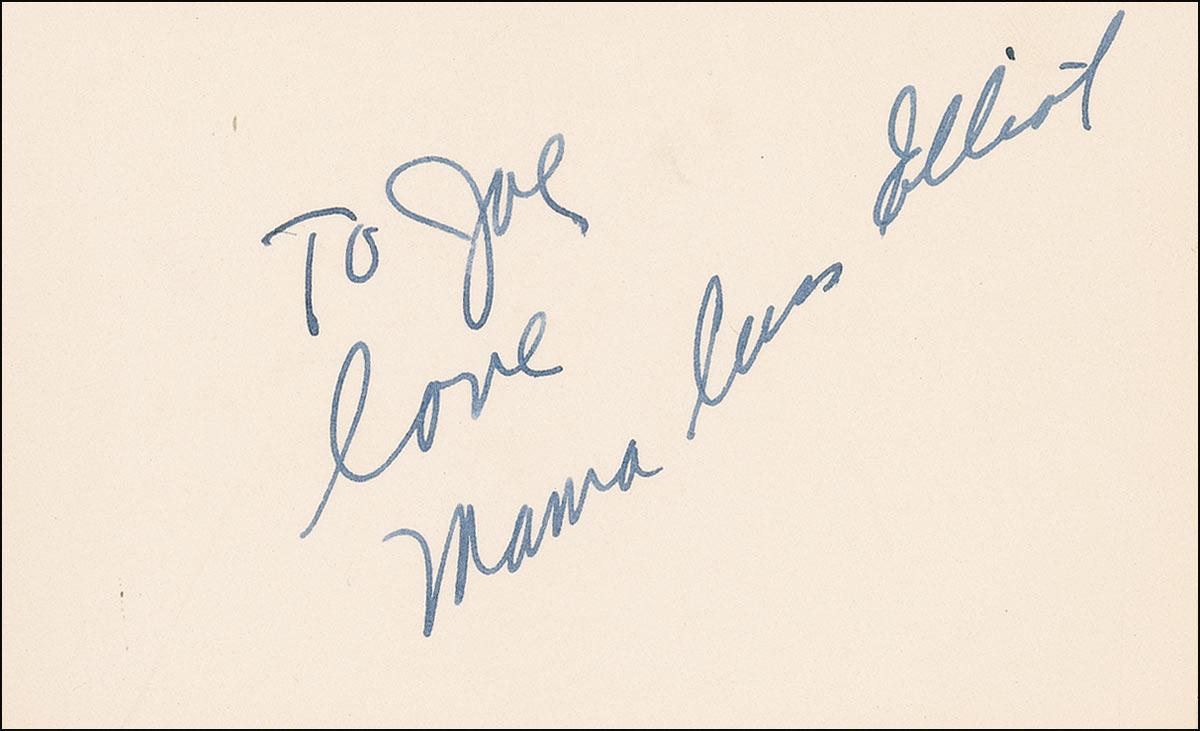 To Joe
love
Mama Cass Elliot